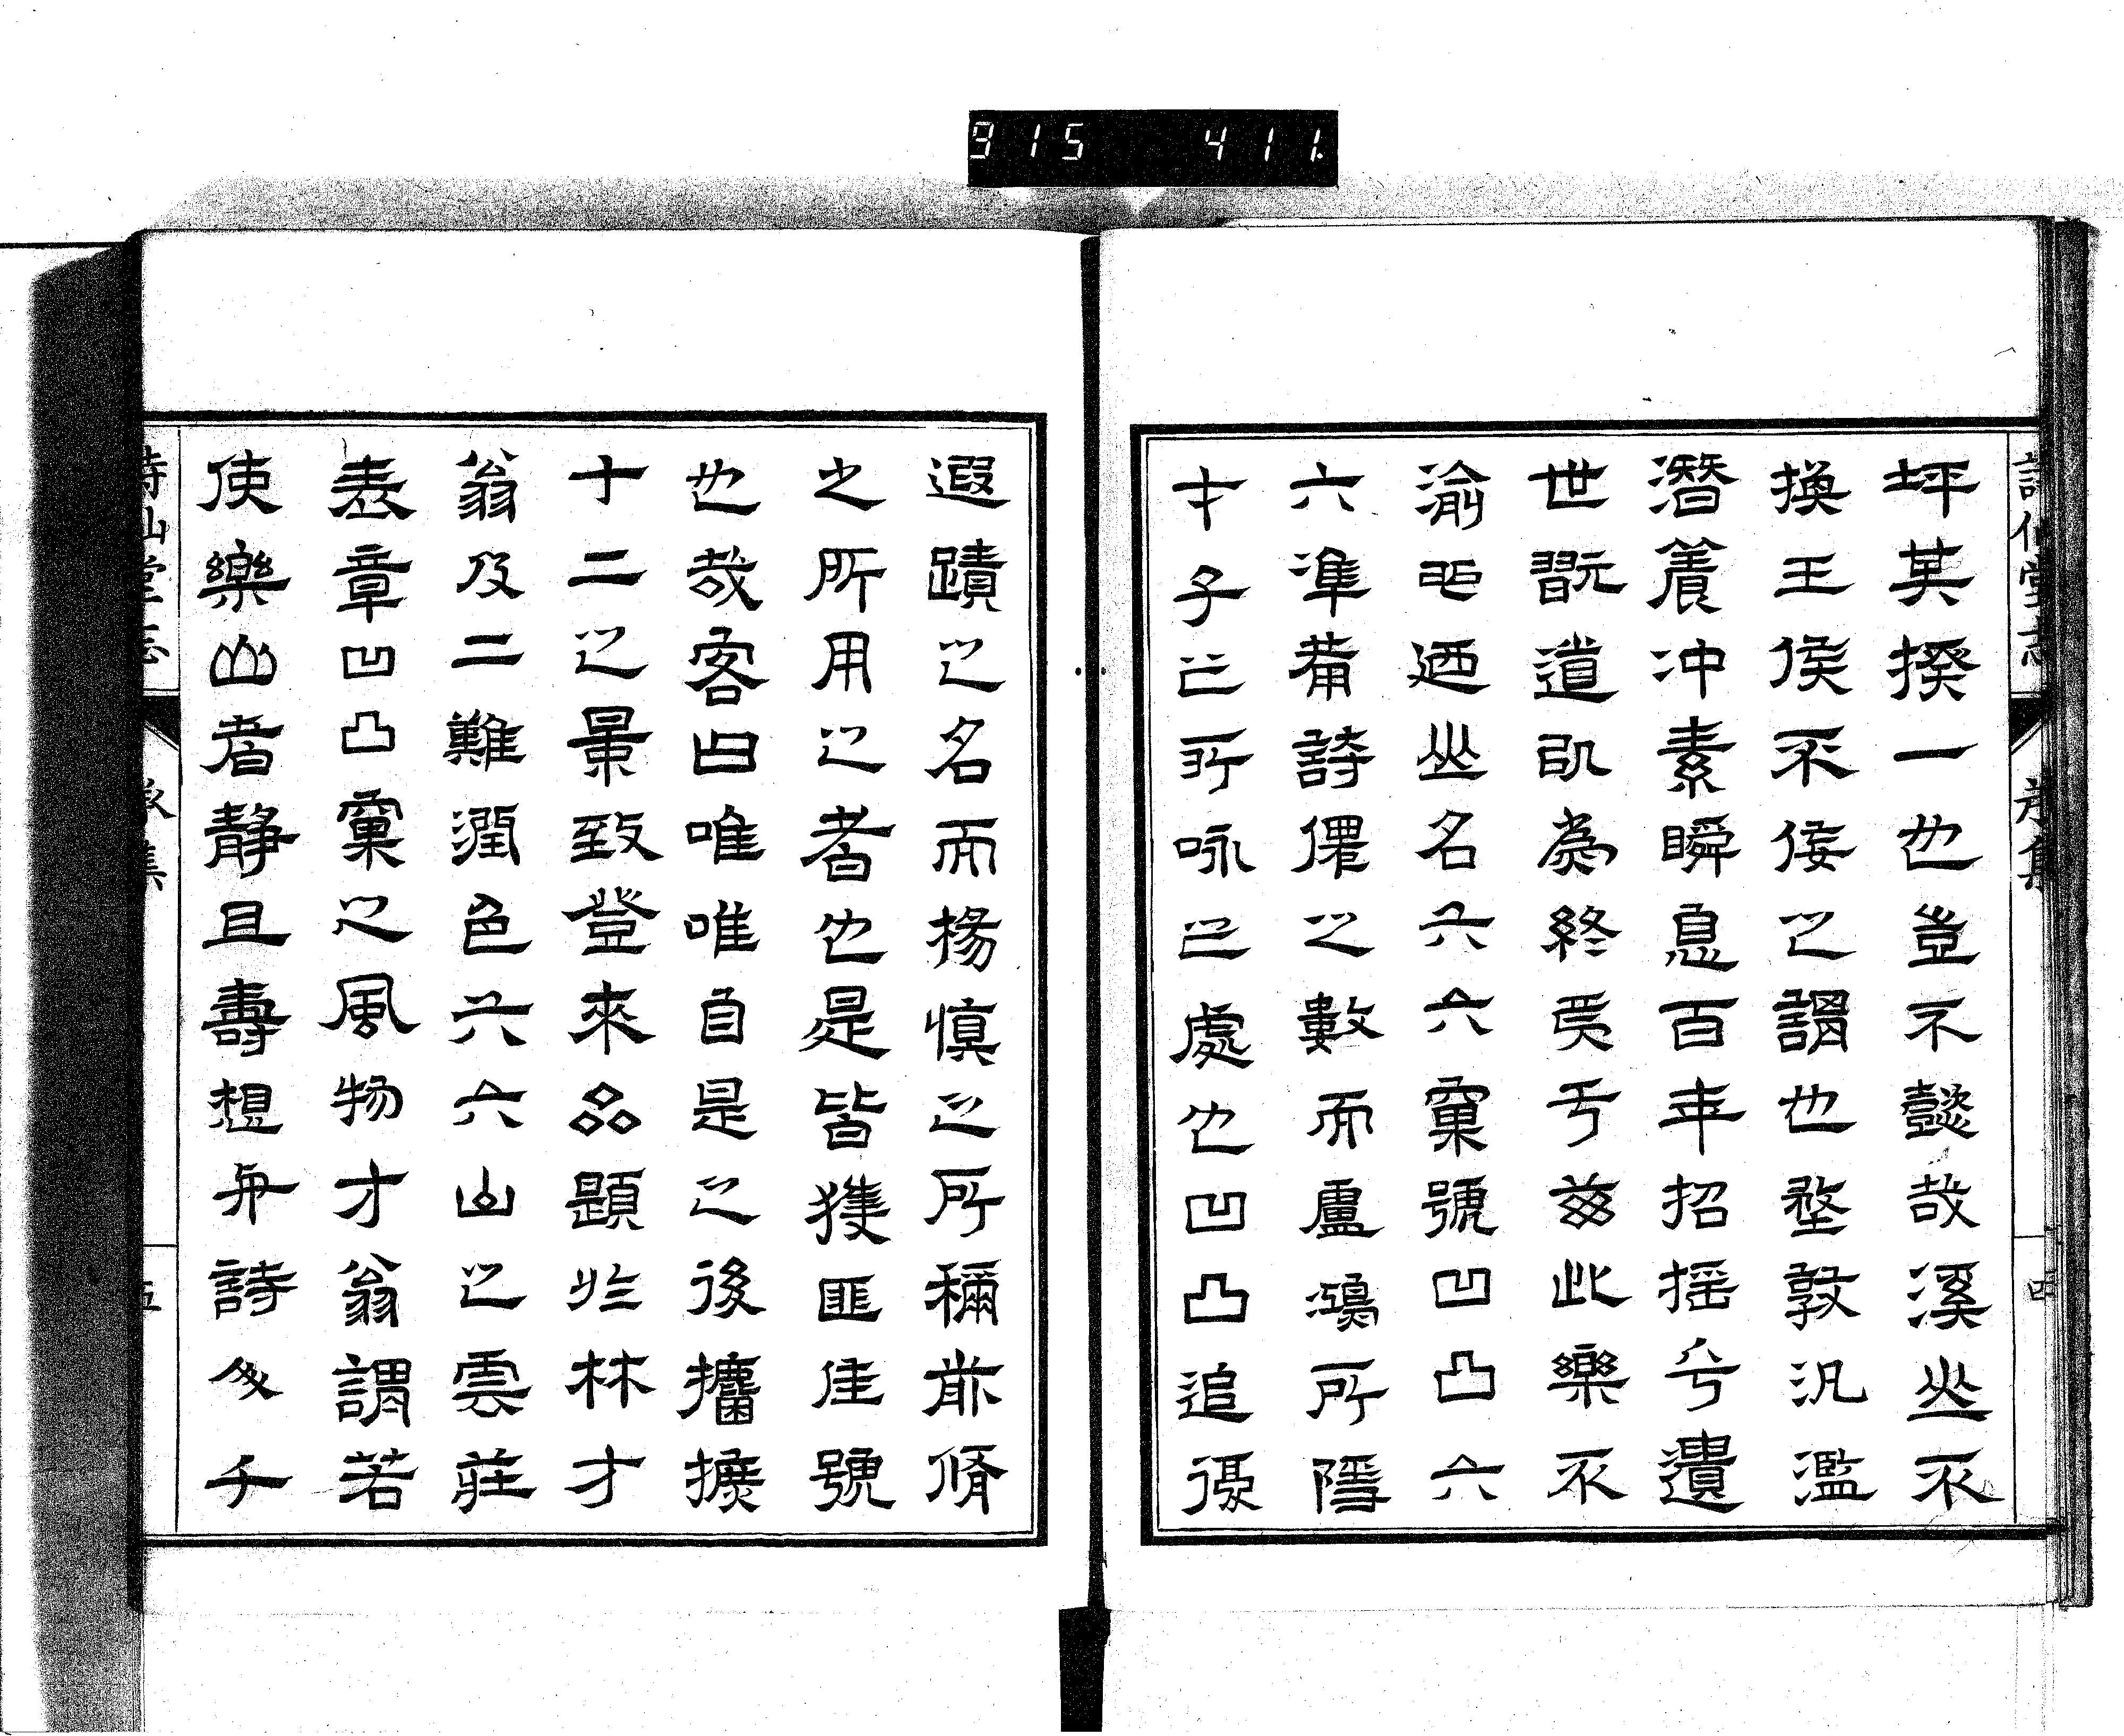 915 411
詩仙堂志
序集
四
坪其揆一也豈不懿哉溪山不
換王侯不佞之謂也墪敦汎濫
潛養沖素瞬息百年招搖兮遺
世翫道以為終焉于茲此樂不
渝也迺山名六六窠號凹凸六
六準葡詩僊之數而盧鴻所隱
才子之所咏之處也凹凸追
遐蹟之名而揚慎之所稱前脩
之所用之者也是皆獲匪佳號
也哉客曰唯唯自是之後攟摭
十二之景致登來品題於林才
翁及二難潤色六六山之雲莊
表章凹凸窠之風物才翁謂若
使樂山者靜且壽想舟詩及千
詩仙堂志
序集
五